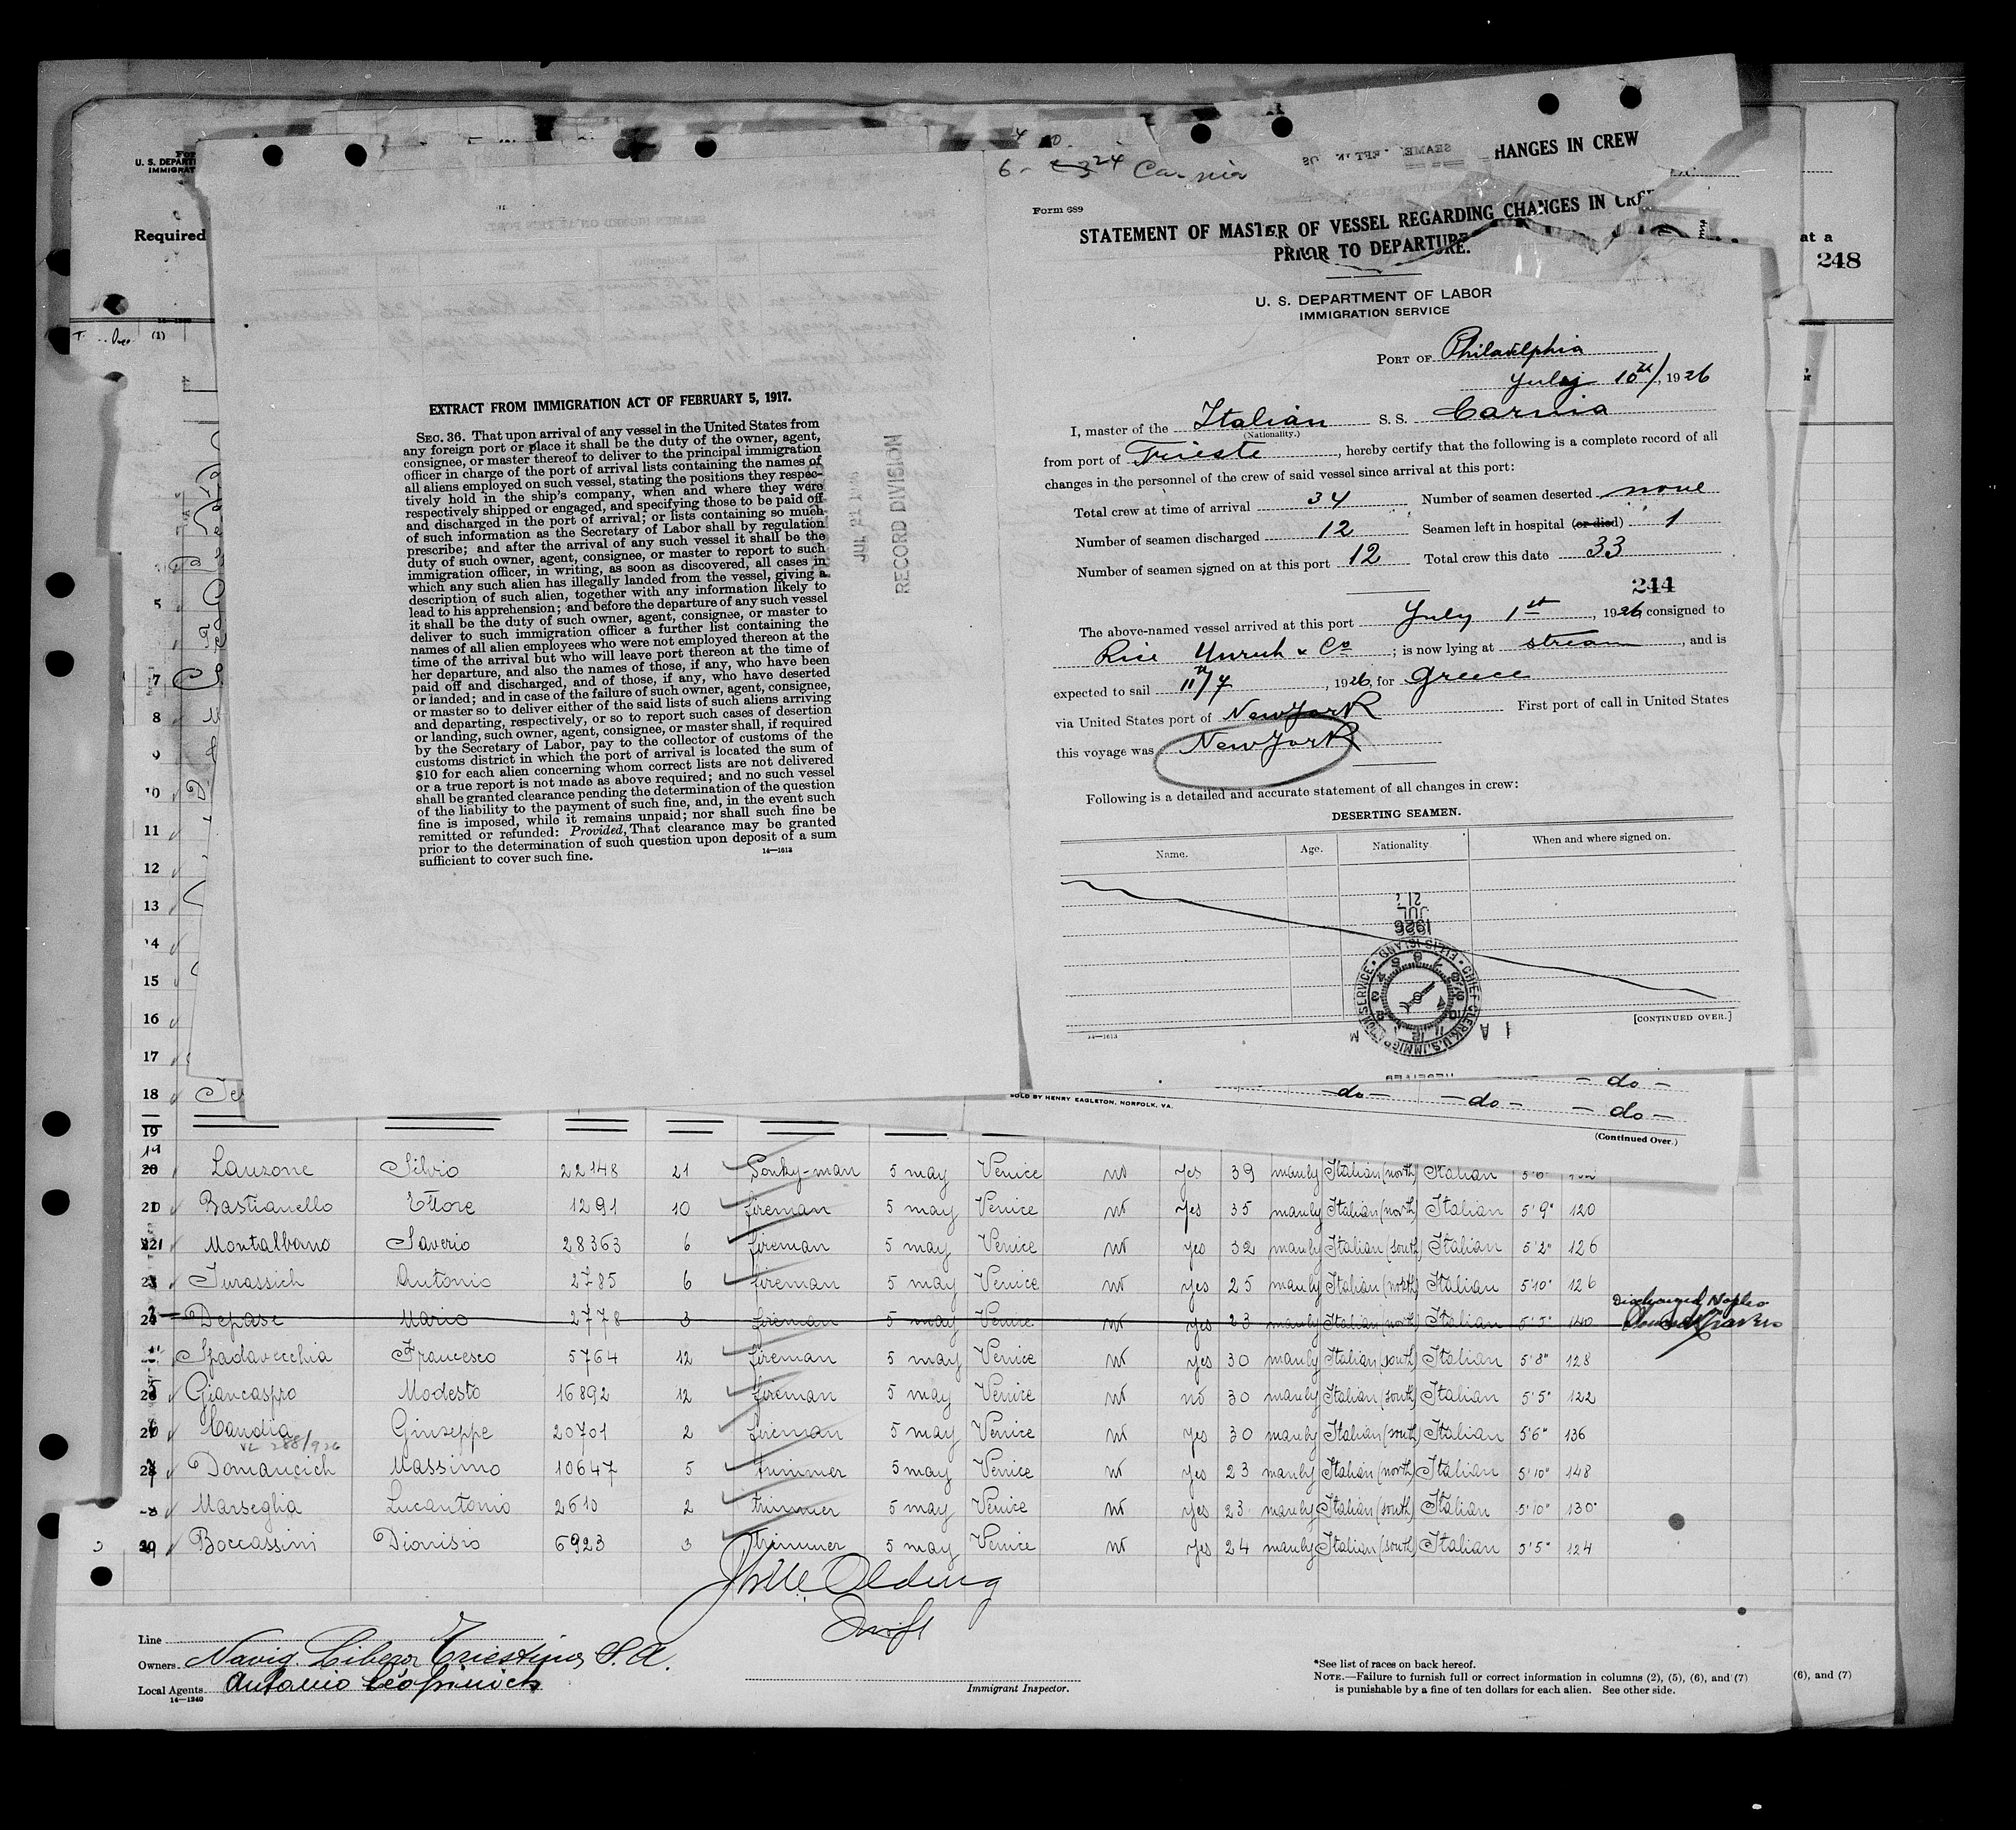 U. S. DEPART
IMMIGRAT
Required
(1)
EXTRACT FROM IMMIGRATION ACT OF FEBRUARY 5, 1917.
SEC. 36. That upon arrival of any vessel in the United States from
any foreign port or place it shall be the duty of the owner, agent,
consignee, or master thereof to deliver to the principal immigration
officer in charge of the port of arrival lists containing the names of
all aliens employed on such vessel, stating the positions they respec-
tively hold in the ship's company, when and where they were
respectively shipped or engaged, and specifying those to be paid off
and discharged in the port of arrival; or lists containing so much
of such information as the Secretary of Labor shall by regulation
prescribe; and after the arrival of any such vessel it shall be the
duty of such owner, agent, consignee, or master to report to such
immigration officer, in writing, as soon as discovered, all cases in
which any such alien has illegally landed from the vessel, giving a
description of such alien, together with any information likely to
lead to his apprehension; and before the departure of any such vessel
it shall be the duty of such owner, agent, consignee, or master to
deliver to such immigration officer a further list containing the
names of all alien employees who were not employed thereon at the
time of the arrival but who will leave port thereon at the time of
her departure, and also the names of those, if any, who have been
paid off and discharged, and of those, if any, who have deserted
or landed; and in case of the failure of such owner, agent, consignee,
or master so to deliver either of the said lists of such aliens arriving
and departing, respectively, or so to report such cases of desertion
or landing, such owner, agent, consignee, or master shall, if required
by the Secretary of Labor, pay to the collector of customs of the
customs district in which the port of arrival is located the sum of
$10 for each alien concerning whom correct lists are not delivered
or a true report is not made as above required; and no such vessel
shall be granted clearance pending the determination of the question
of the liability to the payment of such fine, and, in the event such
fine is imposed, while it remains unpaid; nor shall such fine be
remitted or refunded: Provided, That clearance may be granted
prior to the determination of such question upon deposit of a sum
sufficient to cover such fine.
14—1613
RECORD DIVISION
HANGES IN CREW
Carnia
Form 689
STATEMENT OF MASTER OF VESSEL REGARDING CHANGES IN CRE
PRIOR TO DEPARTURE.
at a
248
U. S. DEPARTMENT OF LABOR
IMMIGRATION SERVICE
PORT OF Philadelphia
July 10th, 1926
I, master of the Italian S. S. Carnia
(Nationality.)
from port of Trieste, hereby certify that the following is a complete record of all
changes in the personnel of the crew of said vessel since arrival at this port:
Total crew at time of arrival 34 Number of seamen deserted none
Number of seamen discharged 12 Seamen left in hospital (or died) 1
Number of seamen signed on at this port 12 Total crew this date 33
244
The above-named vessel arrived at this port July 1st, 1926, consigned to
Rice Unruh & Co ; is now lying at stream, and is
expected to sail 11th/7, 1926, for Greece
via United States port of New York First port of call in United States
this voyage was New York
Following is a detailed and accurate statement of all changes in crew:
DESERTING SEAMEN.
Name. Age. Nationality. When and where signed on.
1926
JUL
21
CHIEF CLERK, U.S. IMMIGRATION SERVICE • ELLIS ISLAND •
[CONTINUED OVER.]
14—1613
5
7
8
9
10
11
12
13
14
15
16
17
18
– do –
SOLD BY HENRY EAGLETON, NORFOLK, VA. –do– –do– –do–
(Continued Over.)
19
20 Lauzone Silvio 22148 21 Donky-man 5 may Venice no yes 39 manly Italian (north) Italian 5'6"
21 Bastianello Ettore 1291 10 fireman 5 may Venice no yes 35 manly Italian (north) Italian 5'9" 120
22 Montalbano Saverio 28363 6 fireman 5 may Venice no yes 32 manly Italian (south) Italian 5'2" 126
23 Jurassich Antonio 2785 6 fireman 5 may Venice no yes 25 manly Italian (north) Italian 5'10" 126
24 Depase Mario 2778 3 fireman 5 may Venice no yes 23 manly Italian (north) Italian 5'5" 140 Discharged Naples
Spadavecchia Francesco 5764 12 fireman 5 may Venice no yes 30 manly Italian (south) Italian 5'8" 128
26 Giancaspro Modesto 16892 12 fireman 5 may Venice no no 30 manly Italian (south) Italian 5'5" 122
27 Candia Giuseppe 20701 2 fireman 5 may Venice no yes 30 manly Italian (south) Italian 5'6" 136
28 Domancich Massimo 10647 5 trimmer 5 may Venice no yes 23 manly Italian (north) Italian 5'10" 148
Marseglia Lucantonio 2610 2 trimmer 5 may Venice no yes 23 manly Italian (south) Italian 5'10" 130
30 Boccassini Dionisio 6923 3 trimmer 5 may Venice no yes 24 manly Italian (south) Italian 5'5" 124
Line
Owners Navig. Libera Triestina S.A.
Local Agents Antonio
14—1240
Immigrant Inspector.
*See list of races on back hereof.
NOTE.—Failure to furnish full or correct information in columns (2), (5), (6), and (7)
is punishable by a fine of ten dollars for each alien. See other side.
(6), and (7)